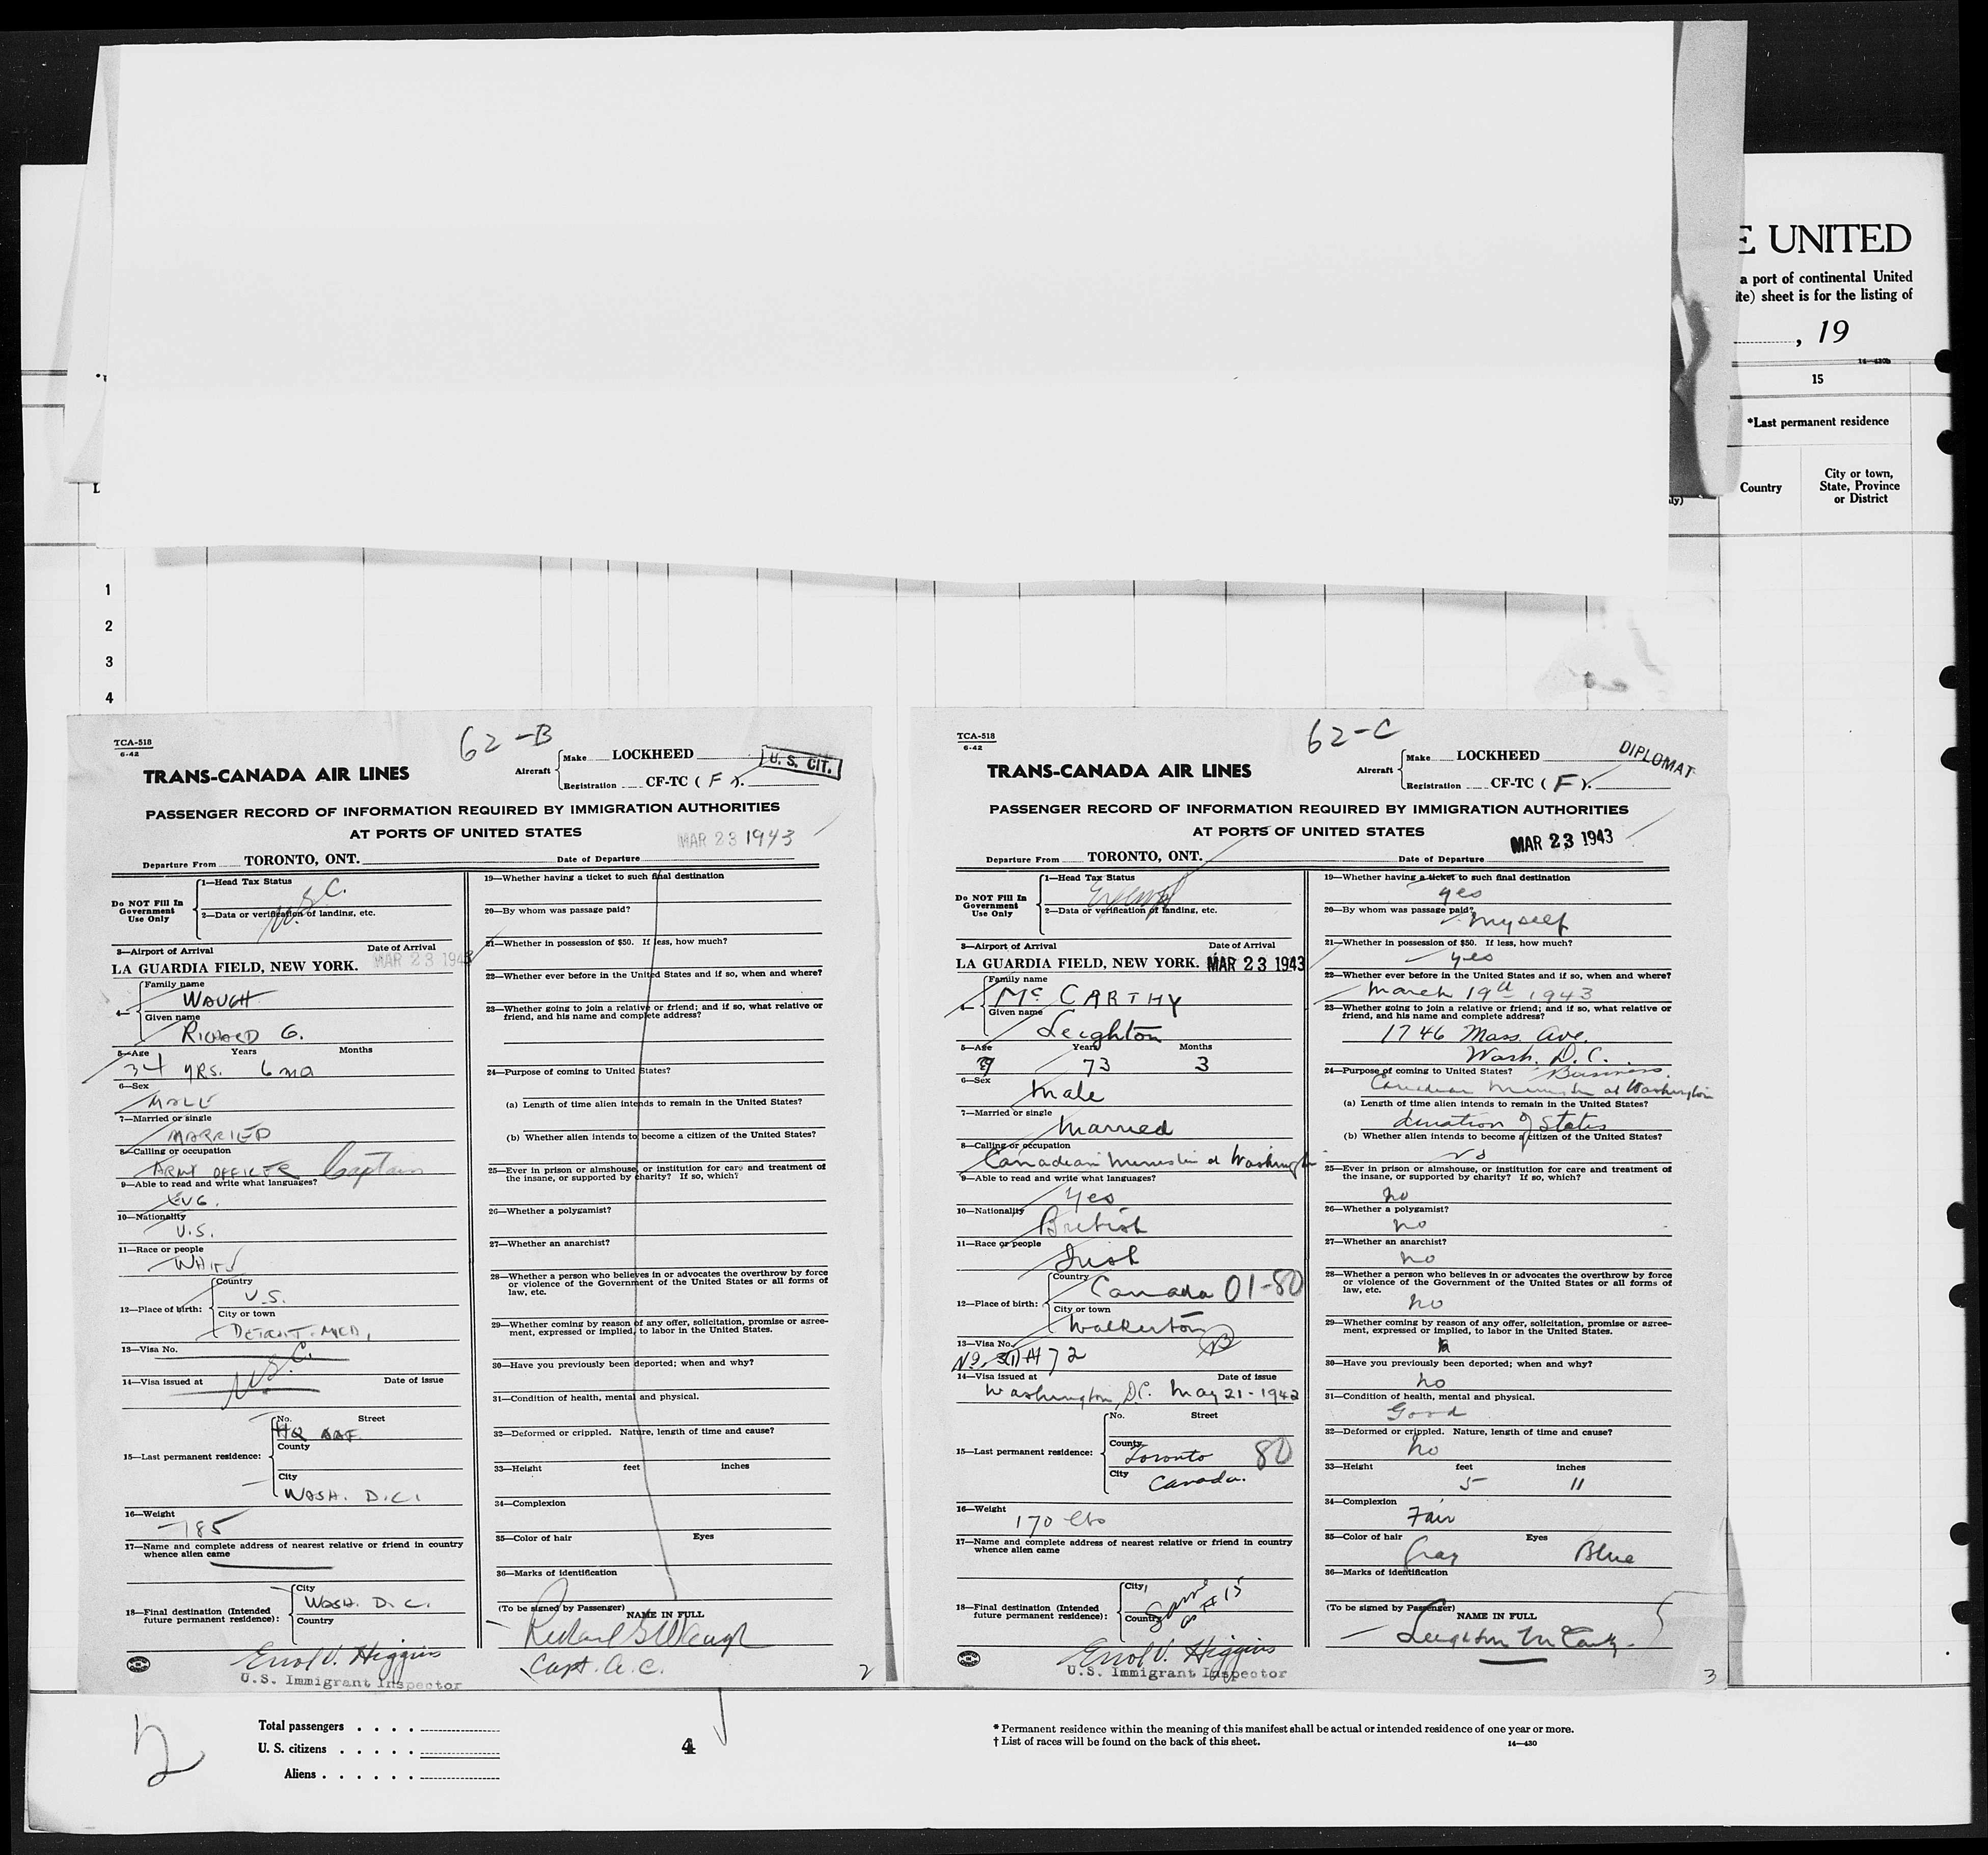 E UNITED
a port of continental United
ite) sheet is for the listing of
, 19
14—430b
15
*Last permanent residence
Country
City or town,
State, Province
or District
1
2
3
4
62-B
TCA-518
6-42
TRANS-CANADA AIR LINES
Aircraft
Make LOCKHEED
Registration CF-TC ( F ).
U. S. CIT.
PASSENGER RECORD OF INFORMATION REQUIRED BY IMMIGRATION AUTHORITIES
AT PORTS OF UNITED STATES
MAR 23 1943
Departure From TORONTO, ONT. Date of Departure
Do NOT Fill In
Government
Use Only
1—Head Tax Status
U.S.C.
2—Data or verification of landing, etc.
3—Airport of Arrival Date of Arrival
LA GUARDIA FIELD, NEW YORK. MAR 23 1943
4—
Family name
WAUGH
Given name
RICHARD G.
5—Age Years Months
34 YRS. 6 mo
6—Sex
MALE
7—Married or single
MARRIED
8—Calling or occupation
ARMY OFFICER Captain
9—Able to read and write what languages?
ENG.
10—Nationality
U.S.
11—Race or people
WHITE
12—Place of birth:
Country
U.S.
City or town
DETROIT. MICH.
13—Visa No.
U.S.C.
14—Visa issued at Date of issue
15—Last permanent residence:
No. Street
HQ AAF
County
City
WASH. D.C.
16—Weight
185
17—Name and complete address of nearest relative or friend in country
whence alien came
18—Final destination (Intended
future permanent residence):
City
WASH. D.C.
Country
Errol V. Higgins
U.S. Immigrant Inspector
19—Whether having a ticket to such final destination
20—By whom was passage paid?
21—Whether in possession of $50. If less, how much?
22—Whether ever before in the United States and if so, when and where?
23—Whether going to join a relative or friend; and if so, what relative or
friend, and his name and complete address?
24—Purpose of coming to United States?
(a) Length of time alien intends to remain in the United States?
(b) Whether alien intends to become a citizen of the United States?
25—Ever in prison or almshouse, or institution for care and treatment of
the insane, or supported by charity? If so, which?
26—Whether a polygamist?
27—Whether an anarchist?
28—Whether a person who believes in or advocates the overthrow by force
or violence of the Government of the United States or all forms of
law, etc.
29—Whether coming by reason of any offer, solicitation, promise or agree-
ment, expressed or implied, to labor in the United States.
30—Have you previously been deported; when and why?
31—Condition of health, mental and physical.
32—Deformed or crippled. Nature, length of time and cause?
33—Height feet inches
34—Complexion
35—Color of hair Eyes
36—Marks of identification
(To be signed by Passenger)
NAME IN FULL
Richard G Waugh
Capt. A.C.
2
62-C
TCA-518
6-42
TRANS-CANADA AIR LINES
Aircraft
Make LOCKHEED
Registration CF-TC ( F ).
DIPLOMAT
PASSENGER RECORD OF INFORMATION REQUIRED BY IMMIGRATION AUTHORITIES
AT PORTS OF UNITED STATES
MAR 23 1943
Departure From TORONTO, ONT. Date of Departure
Do NOT Fill In
Government
Use Only
1—Head Tax Status
2—Data or verification of landing, etc.
3—Airport of Arrival Date of Arrival
LA GUARDIA FIELD, NEW YORK. MAR 23 1943
4—
Family name
Mc CARTHY
Given name
Leighton
5—Age Years Months
73 3
6—Sex
Male
7—Married or single
Married
8—Calling or occupation
Canadian Minister at Washington
9—Able to read and write what languages?
Yes
10—Nationality
British
11—Race or people
Irish
12—Place of birth:
Country
Canada 01-80
City or town
Walkerton
13—Visa No.
14—Visa issued at Date of issue
Washington, D.C. May 21-1942
15—Last permanent residence:
No. Street
County
Toronto 80
City
Canada.
16—Weight
170 lbs
17—Name and complete address of nearest relative or friend in country
whence alien came
18—Final destination (Intended
future permanent residence):
City
Country
Same as #15
Errol V. Higgins
U.S. Immigrant Inspector
19—Whether having a ticket to such final destination
yes
20—By whom was passage paid?
myself
21—Whether in possession of $50. If less, how much?
yes
22—Whether ever before in the United States and if so, when and where?
March 19th 1943
23—Whether going to join a relative or friend; and if so, what relative or
friend, and his name and complete address?
1746 Mass. Ave.
Wash. D.C.
24—Purpose of coming to United States? Business.
Canadian Minister at Washington
(a) Length of time alien intends to remain in the United States?
duration of Status
(b) Whether alien intends to become a citizen of the United States?
no
25—Ever in prison or almshouse, or institution for care and treatment of
the insane, or supported by charity? If so, which?
no
26—Whether a polygamist?
no
27—Whether an anarchist?
no
28—Whether a person who believes in or advocates the overthrow by force
or violence of the Government of the United States or all forms of
law, etc.
no
29—Whether coming by reason of any offer, solicitation, promise or agree-
ment, expressed or implied, to labor in the United States.
30—Have you previously been deported; when and why?
no
31—Condition of health, mental and physical.
Good
32—Deformed or crippled. Nature, length of time and cause?
no
33—Height feet inches
5 11
34—Complexion
Fair
35—Color of hair Eyes
Gray Blue
36—Marks of identification
(To be signed by Passenger)
NAME IN FULL
Leighton McCarthy
3
2
Total passengers . . . .
U. S. citizens . . . . .
Aliens . . . . . .
4
* Permanent residence within the meaning of this manifest shall be actual or intended residence of one year or more.
† List of races will be found on the back of this sheet.
14—430